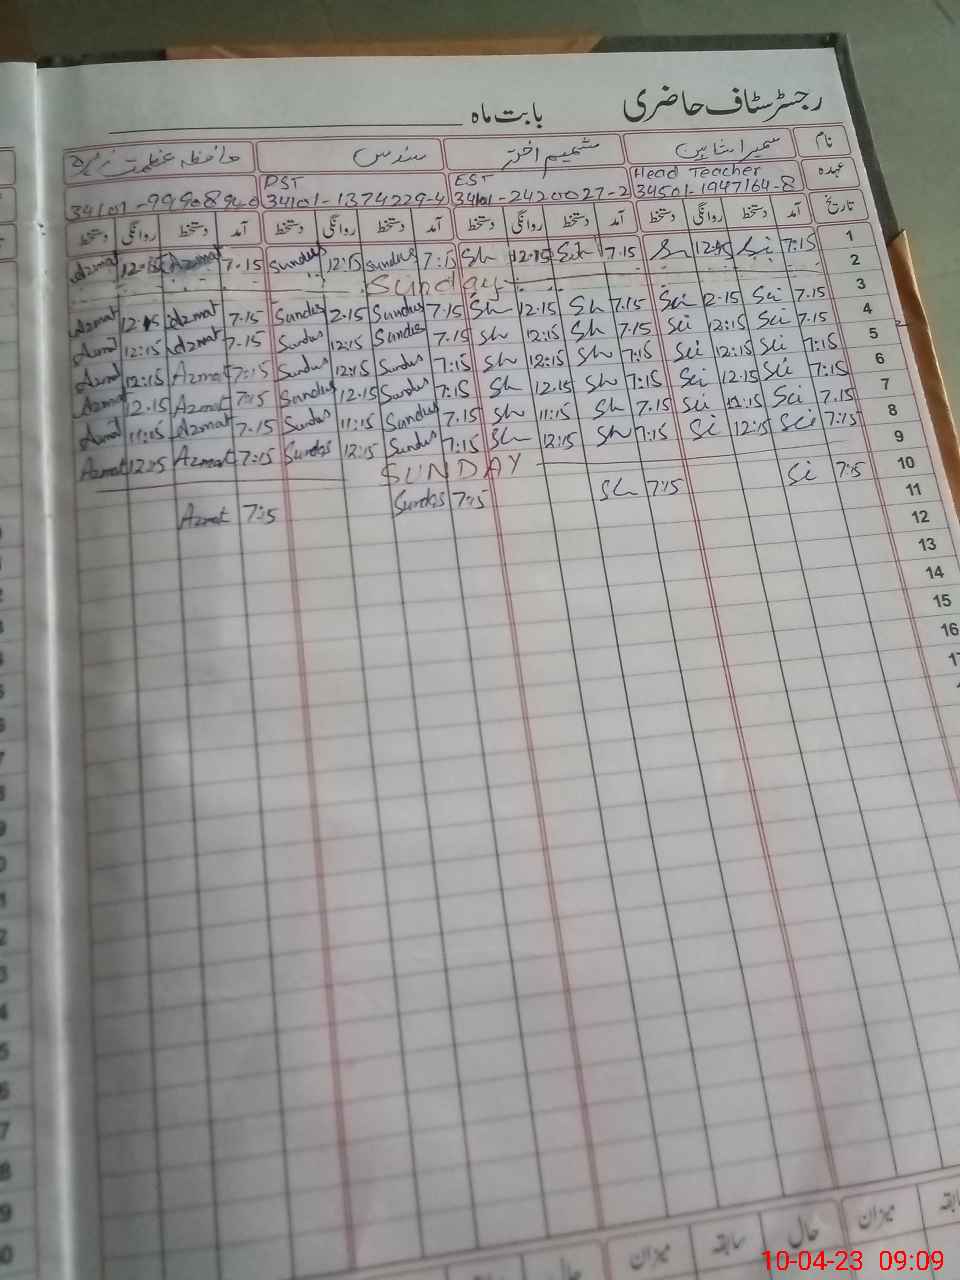 رجسٹر سٹاف حاضری بابت ماہ
نام سمیرا شاہین شمیم اختر سندس حافظہ عظمت
عہدہ Head Teacher EST PST
34501-1947164-8 34101-2420027-2 34101-1374229-4
تاریخ آمد دستخط روانگی دستخط آمد دستخط روانگی دستخط آمد دستخط روانگی دستخط آمد دستخط روانگی دستخط
Azmat 12:15 Azmat 7.15 Sundus 12:15 Sundus 7:15 Sh 12.15 Sh 7.15 Si 12:15 Si 7:15 1
Sunday 2
Azmat 12.15 Azmat 7.15 Sundus 2.15 Sundus 7.15 Sh 12.15 Sh 7.15 Sci 2.15 Sci 7.15 3
Azmat 12:15 Azmat 7.15 Sundus 12:15 Sundus 7.15 Sh 12:15 Sh 7.15 Sci 12:15 Sci 7.15 4
Azmat 12:15 Azmat 7:15 Sundus 12:15 Sundus 7:15 Sh 12:15 Sh 7:15 Sci 12:15 Sci 7:15 5
Azmat 12.15 Azmat 7:15 Sundus 12.15 Sundus 7:15 Sh 12.15 Sh 7:15 Sci 12.15 Sci 7:15 6
Azmat 11:15 Azmat 7.15 Sundus 11:15 Sundus 7.15 Sh 11:15 Sh 7.15 Sci 11:15 Sci 7.15 7
Azmat 12:15 Azmat 7:15 Sundas 12:15 Sundus 7:15 Sh 12:15 Sh 7:15 Si 12:15 Sci 7:15 8
SUNDAY 9
Azmat 7:15 Sundas 7:15 Sh 7:15 Si 7:15 10
11
12
13
14
15
16
17
میزان حال سابقہ میزان حال سابقہ
10-04-23 09:09